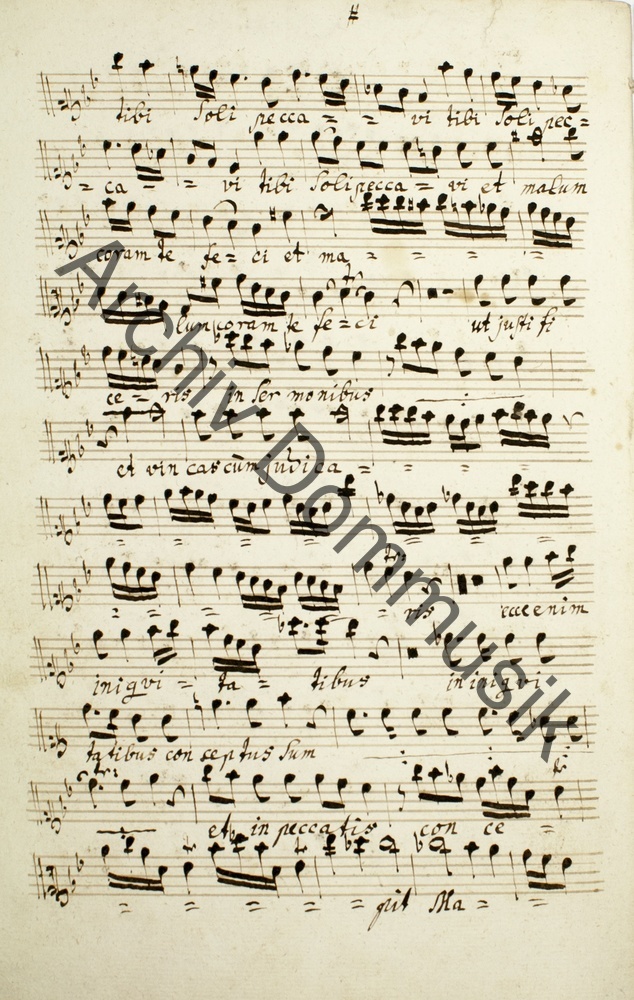 tibi soli pecca = = vi tibi soli pec =
= ca - - vi tibi soli pecca = vi et malum
coram te fe = ci et ma = = = = =
lum coram te fe = ci ut justi fi
ce = ris in ser monibus
et vin cas cùm judica = = = = =
= = = = = = =
= = = = = ris ecce enim
iniqvi = ta = tibus in iniqvi
tatibus con ceptus sum
et in peccatis con ce =
= = = = = pit Ma = =
Archiv Dommusik